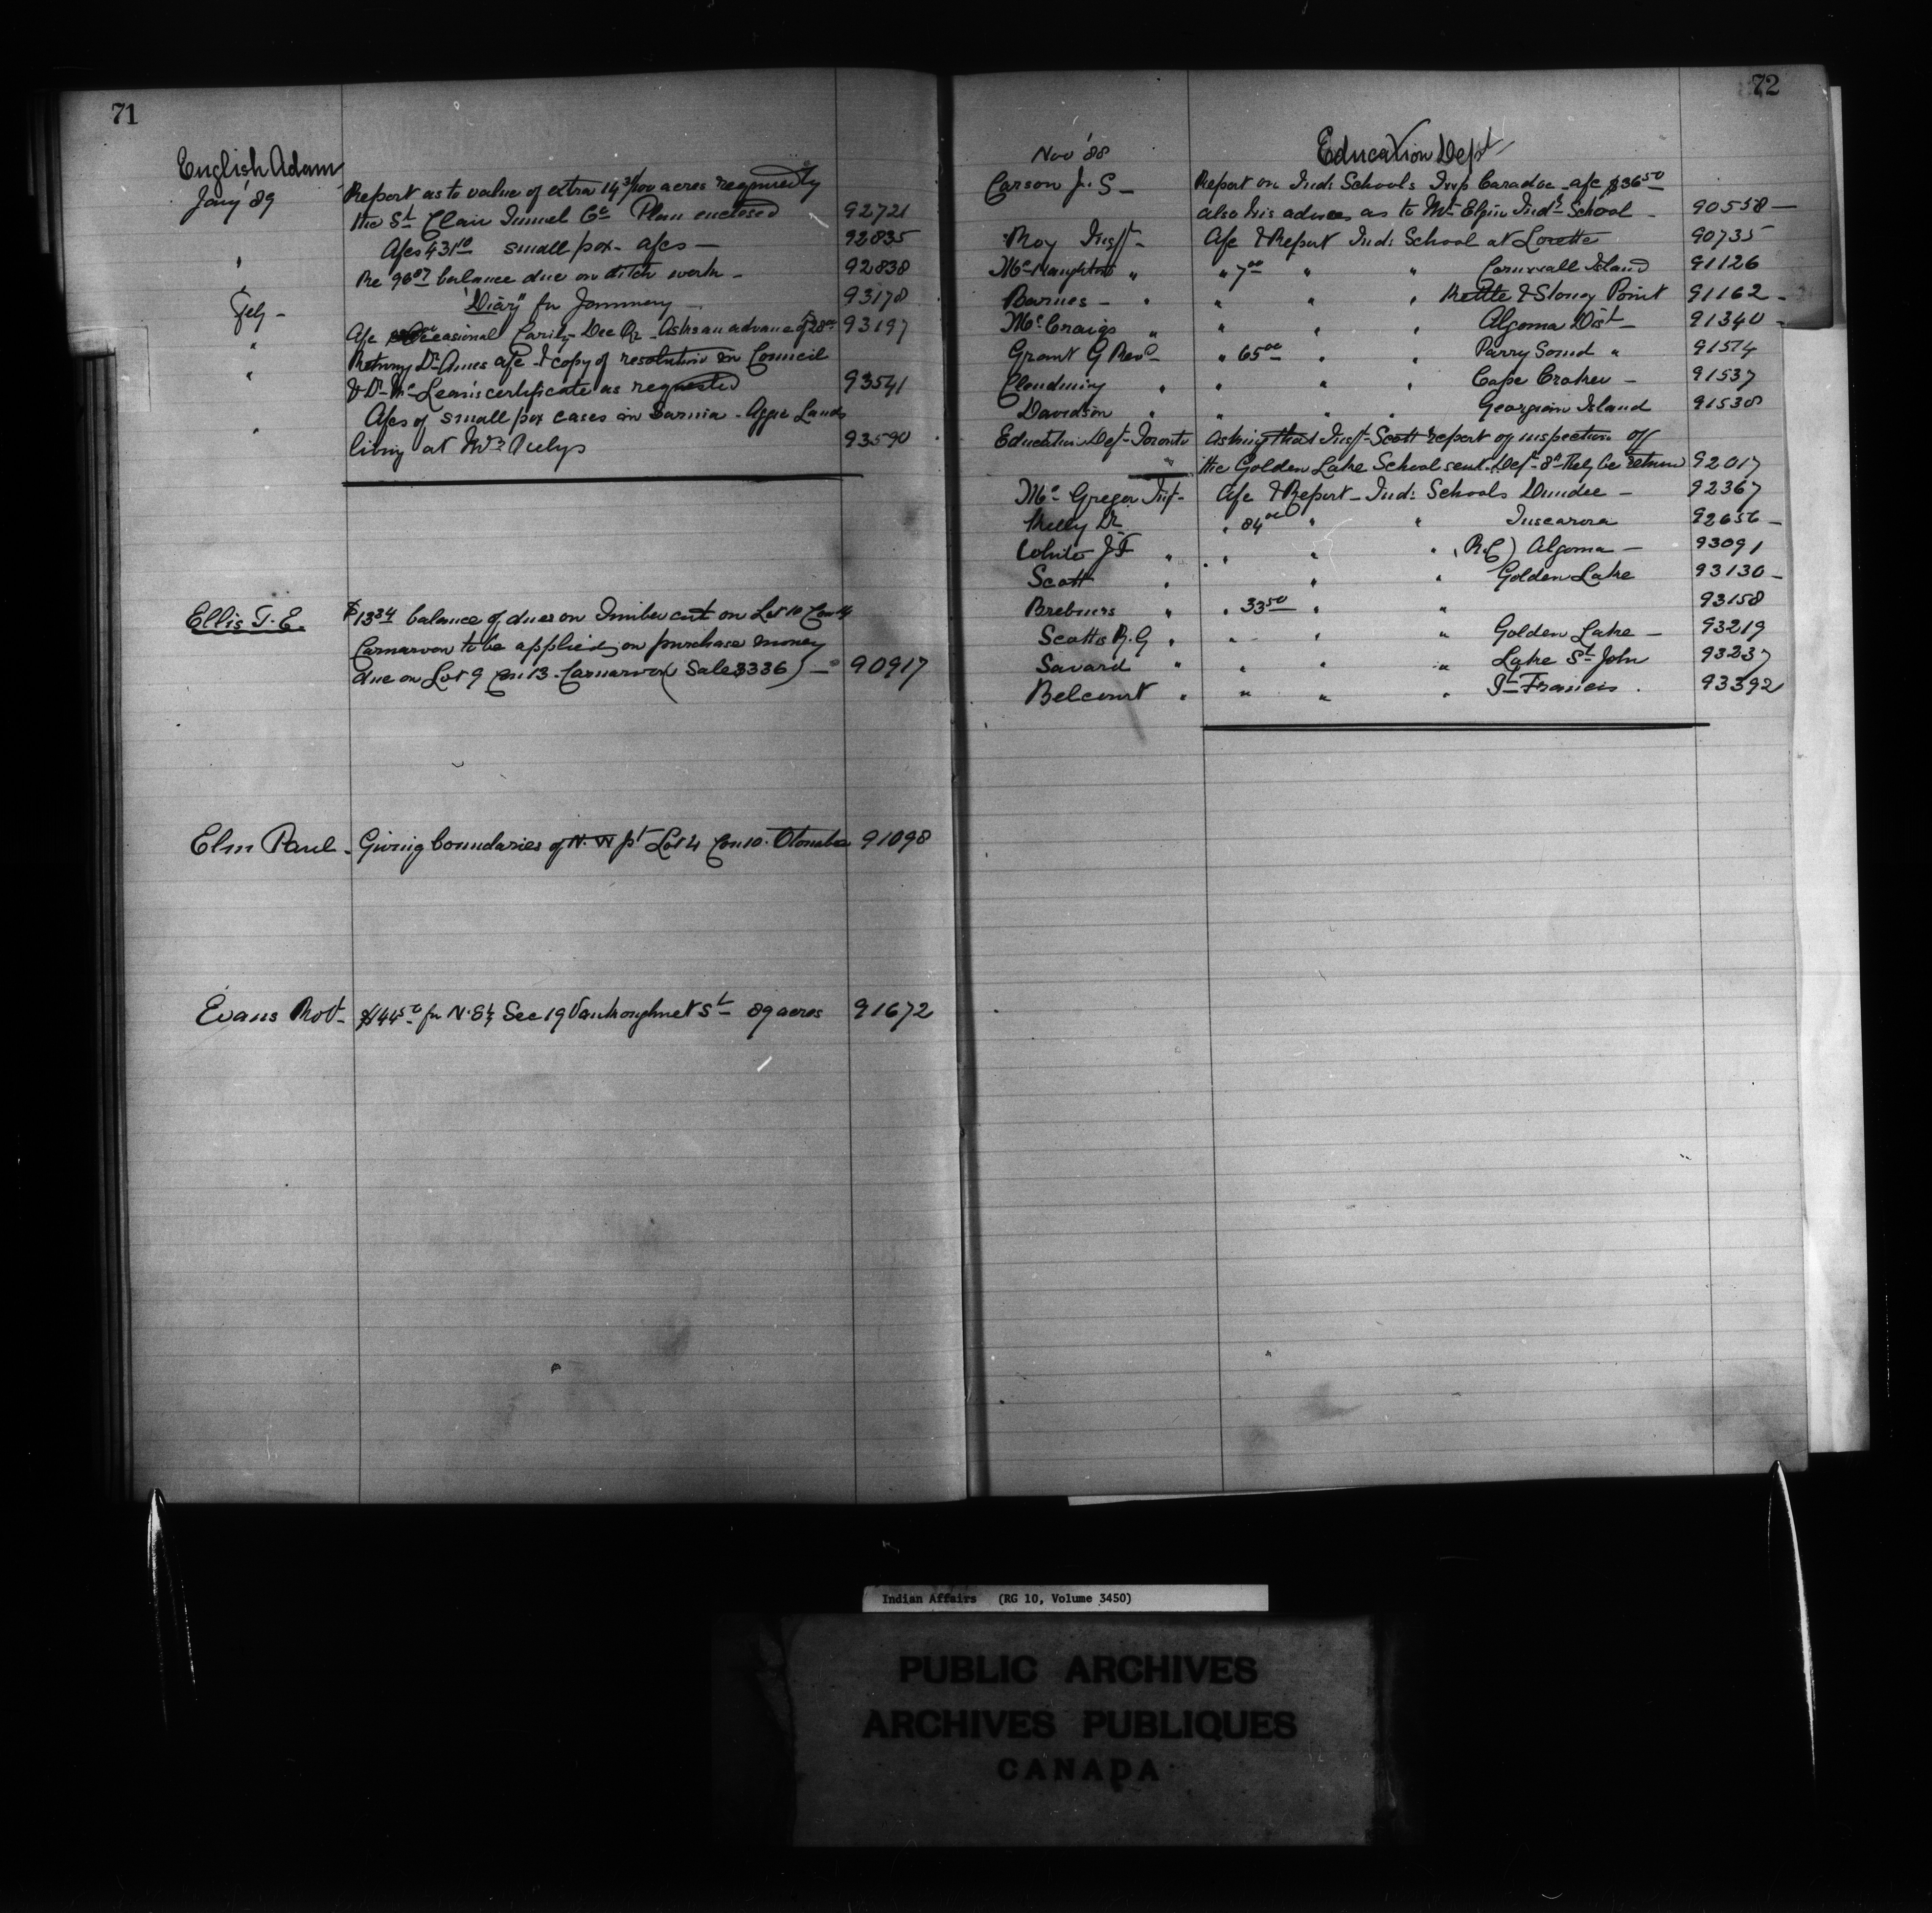 71
English Adam
Jany '89 Report as to value of extra 14 3/100 acres required by
the St Clair Tunnel Co Plan enclosed 92721
" Afcs 431 10 small pox afcs — 92835
" Re 96 07 balance due on ditch work - 92838
Feby - "Diary" for January - 93178
" Afc Occasional Carity - Dec Qr - Asks an advance of $28 00 93197
" Returns Dr afc & copy of resolution in Council
& Dr Mc Leans certificate as requested 93541
" Afcs of small pox cases in Sarnia - Aggie Lands
living at Mrs 93590
Ellis T. E. $13 34 balance of dues on Timber cut on Lot 10 Con 14
Carnarvon to be applied on purchase money
due on Lot 9 Con 13 - Carnarvon (Sale 3336) — 90917
Elm Paul - Giving boundaries of N. W pt Lot 4 Con 10 - Otonabee 91098
Evans Robt - $144 50 for N. E 1/4 Sec 19 Vankoughnet St 89 acres 91672
72
Nov '88 Education Dept
Carson J. S - Report on Ind: Schools Twp Caradoc - afc $36 50
also his advices as to Mt Elgin Indl School - 90558 —
Roy Inspt - Afc & Report Ind: School at Lorette 90735
Mc Naughton " " 7 00 " " Cornwall Island 91126
Barnes - " " " " Kettle & Stoney Point 91162 -
Mc Craig " " " " Algoma Dist - 91340 -
Grant G Revd - " 65 00 " " Parry Sound " 91574
" " " " Cape Croker - 91537
Davidson " " " " Georgian Island 91538
Education Dept - Toronto Asking that Inspt - Scott report of inspection of
the Golden Lake School sent Dept 8th Feby be return 92017
Mc Gregor Inspt - Afc & Report - Ind: Schools Dundee - 92367
Kelly Dr " 84 00 " " Tuscarora 92656 -
White J F " " " " (R.C) Algoma - 93091
Scott " " " Golden Lake 93130 -
" " 33 50 " " 93158
Scott R. G " " " " Golden Lake - 93219
Savard " " " " Lake St John 93237
Belcourt " " " " St Francis . 93392
Indian Affairs (RG 10, Volume 3450)
PUBLIC ARCHIVES
ARCHIVES PUBLIQUES
CANADA